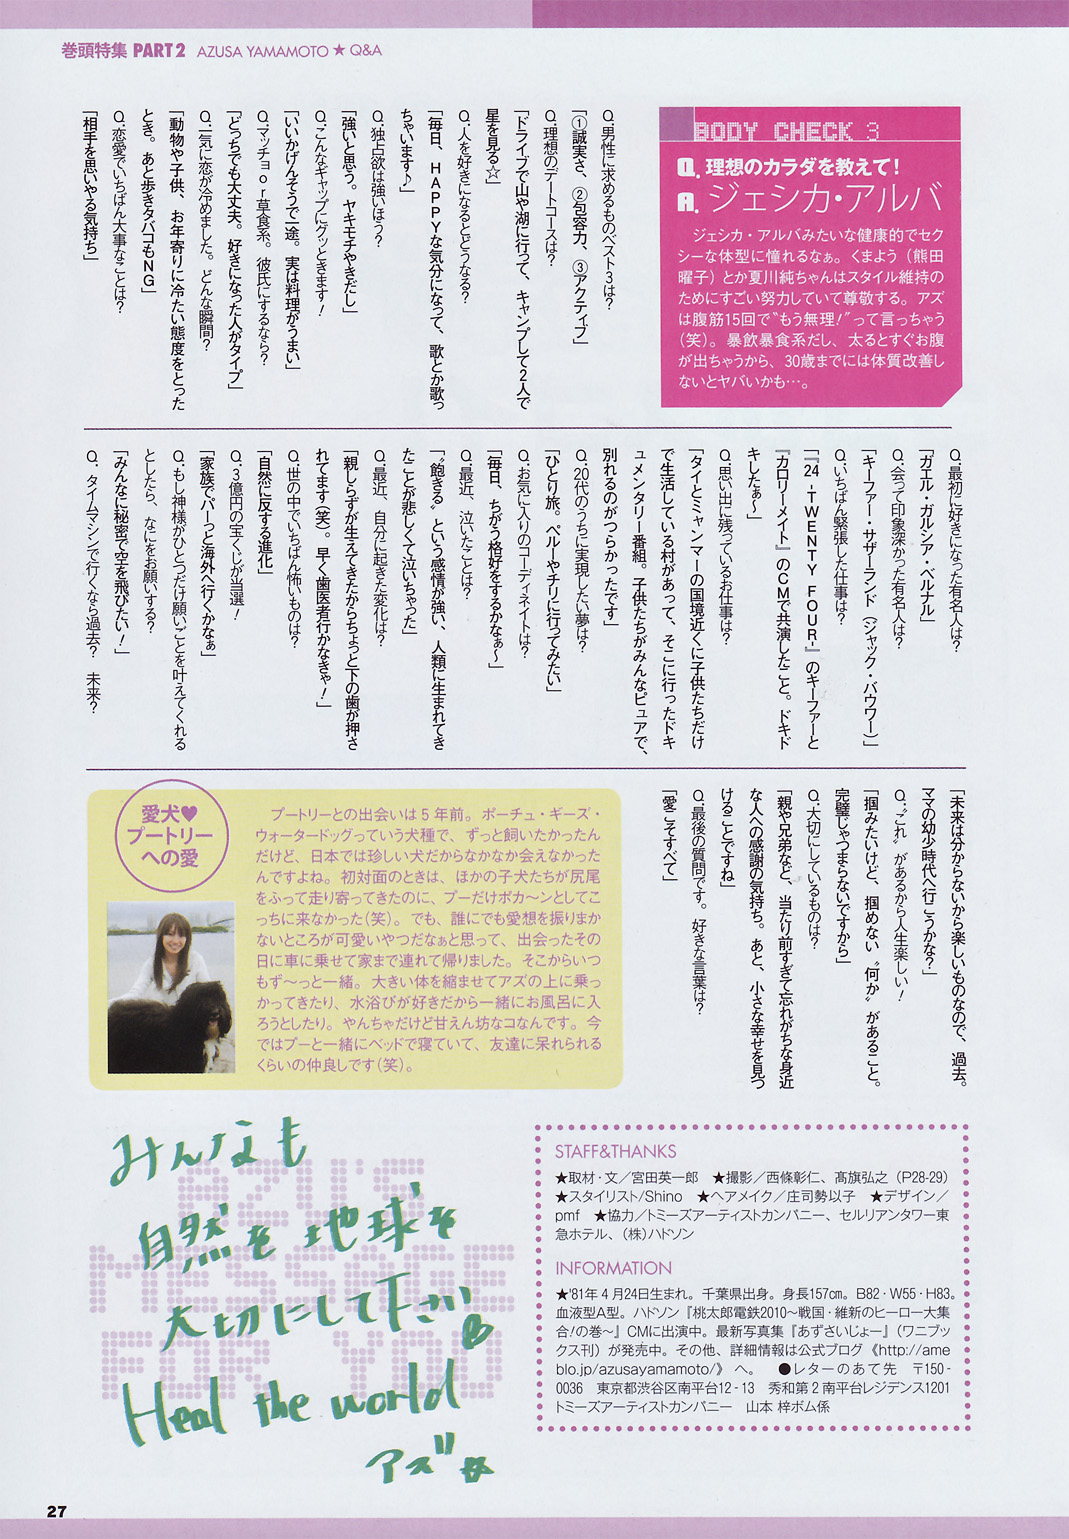 巻頭特集 PART 2 AZUSA YAMAMOTO ★ Q&A
BODY CHECK 3
Q. 理想のカラダを教えて!
A. ジェシカ・アルバ
ジェシカ・アルバみたいな健康的でセク
シーな体型に憧れるなぁ。くまよう（熊田
曜子）とか夏川純ちゃんはスタイル維持の
ためにすごい努力していて尊敬する。アズ
は腹筋15回で“もう無理!”って言っちゃう
（笑）。暴飲暴食系だし、太るとすぐお腹
が出ちゃうから、30歳までには体質改善し
ないとヤバいかも…。
Q. 男性に求めるものベスト3は?
「①誠実さ、②包容力、③アクティブ」
Q. 理想のデートコースは?
「ドライブで山や湖に行って、キャンプして2人で
星を見る☆」
Q. 人を好きになるとどうなる?
「毎日、HAPPYな気分になって、歌とか歌っ
ちゃいます♪」
Q. 独占欲は強いほう?
「強いと思う。ヤキモチやきだし」
Q. こんなギャップにグッときます!
「いいかげんそうで一途。実は料理がうまい」
Q. マッチョor草食系。彼氏にするなら?
「どっちでも大丈夫。好きになった人がタイプ」
Q. 一気に恋が冷めました。どんな瞬間?
「動物や子供、お年寄りに冷たい態度をとった
とき。あと歩きタバコもNG」
Q. 恋愛でいちばん大事なことは?
「相手を思いやる気持ち」
Q. 最初に好きになった有名人は?
「ガエル・ガルシア・ベルナル」
Q. 会って印象深かった有名人は?
「キーファー・サザーランド（ジャック・バウワー）」
Q. いちばん緊張した仕事は?
「『24 -TWENTY FOUR-』のキーファーと
『カロリーメイト』のCMで共演したこと。ドキド
キしたぁ〜」
Q. 思い出に残っているお仕事は?
「タイとミャンマーの国境近くに子供たちだけ
で生活している村があって、そこに行ったドキ
ュメンタリー番組。子供たちがみんなピュアで、
別れるのがつらかったです」
Q. 20代のうちに実現したい夢は?
「ひとり旅。ペルーやチリに行ってみたい」
Q. お気に入りのコーディネイトは?
「毎日、ちがう格好をするかなぁ〜」
Q. 最近、泣いたことは?
「“飽きる”という感情が強い、人類に生まれてき
たことが悲しくて泣いちゃった」
Q. 最近、自分に起きた変化は?
「親しらずが生えてきたからちょっと下の歯が押さ
れてます（笑）。早く歯医者行かなきゃ!」
Q. 世の中でいちばん怖いものは?
「自然に反する進化」
Q. 3億円の宝くじが当選!
「家族でパーっと海外へ行くかなぁ」
Q. もし神様がひとつだけ願いごとを叶えてくれる
としたら、なにをお願いする?
「みんなに秘密で空を飛びたい!」
Q. タイムマシンで行くなら過去? 未来?
「未来は分からないから楽しいものなので、過去。
ママの幼少時代へ行こうかな?」
Q. “これ”があるから人生楽しい!
「掴みたいけど、掴めない“何か”があること。
完璧じゃつまらないですから」
Q. 大切にしているものは?
「親や兄弟など、当たり前すぎて忘れがちな身近
な人への感謝の気持ち。あと、小さな幸せを見つ
けることですね」
Q. 最後の質問です。好きな言葉は?
「愛こそすべて」
愛犬♥
プートリー
への愛
プートリーとの出会いは5年前。ポーチュ・ギーズ・
ウォータードッグっていう犬種で、ずっと飼いたかったん
だけど、日本では珍しい犬だからなかなか会えなかった
んですよね。初対面のときは、ほかの子犬たちが尻尾
をふって走り寄ってきたのに、プーだけポカ〜ンとしてこ
っちに来なかった（笑）。でも、誰にでも愛想を振りまか
ないところが可愛いやつだなぁと思って、出会ったその
日に車に乗せて家まで連れて帰りました。そこからいつ
もず〜っと一緒。大きい体を縮ませてアズの上に乗っ
かってきたり、水浴びが好きだから一緒にお風呂に入
ろうとしたり。やんちゃだけど甘えん坊なコなんです。今
ではプーと一緒にベッドで寝ていて、友達に呆れられる
くらいの仲良しです（笑）。
AZU'S
MESSAGE
FOR YOU
みんなも
自然を地球を
大切にして下さい
Heal the world
アズ☆
STAFF&THANKS
★取材・文／宮田英一郎 ★撮影／西條彰仁、髙旗弘之（P28-29）
★スタイリスト/Shino ★ヘアメイク／庄司勢以子 ★デザイン／
pmf ★協力／トミーズアーティストカンパニー、セルリアンタワー東
急ホテル、（株）ハドソン
INFORMATION
★'81年4月24日生まれ。千葉県出身。身長157㎝。B82・W55・H83。
血液型A型。ハドソン『桃太郎電鉄2010〜戦国・維新のヒーロー大集
合!の巻〜』CMに出演中。最新写真集『あずさいじょー』（ワニブッ
クス刊）が発売中。その他、詳細情報は公式ブログ《http://ame
blo.jp/azusayamamoto/》へ。 ●レターのあて先 〒150-
0036 東京都渋谷区南平台12-13 秀和第2南平台レジデンス1201
トミーズアーティストカンパニー 山本 梓ボム係
27